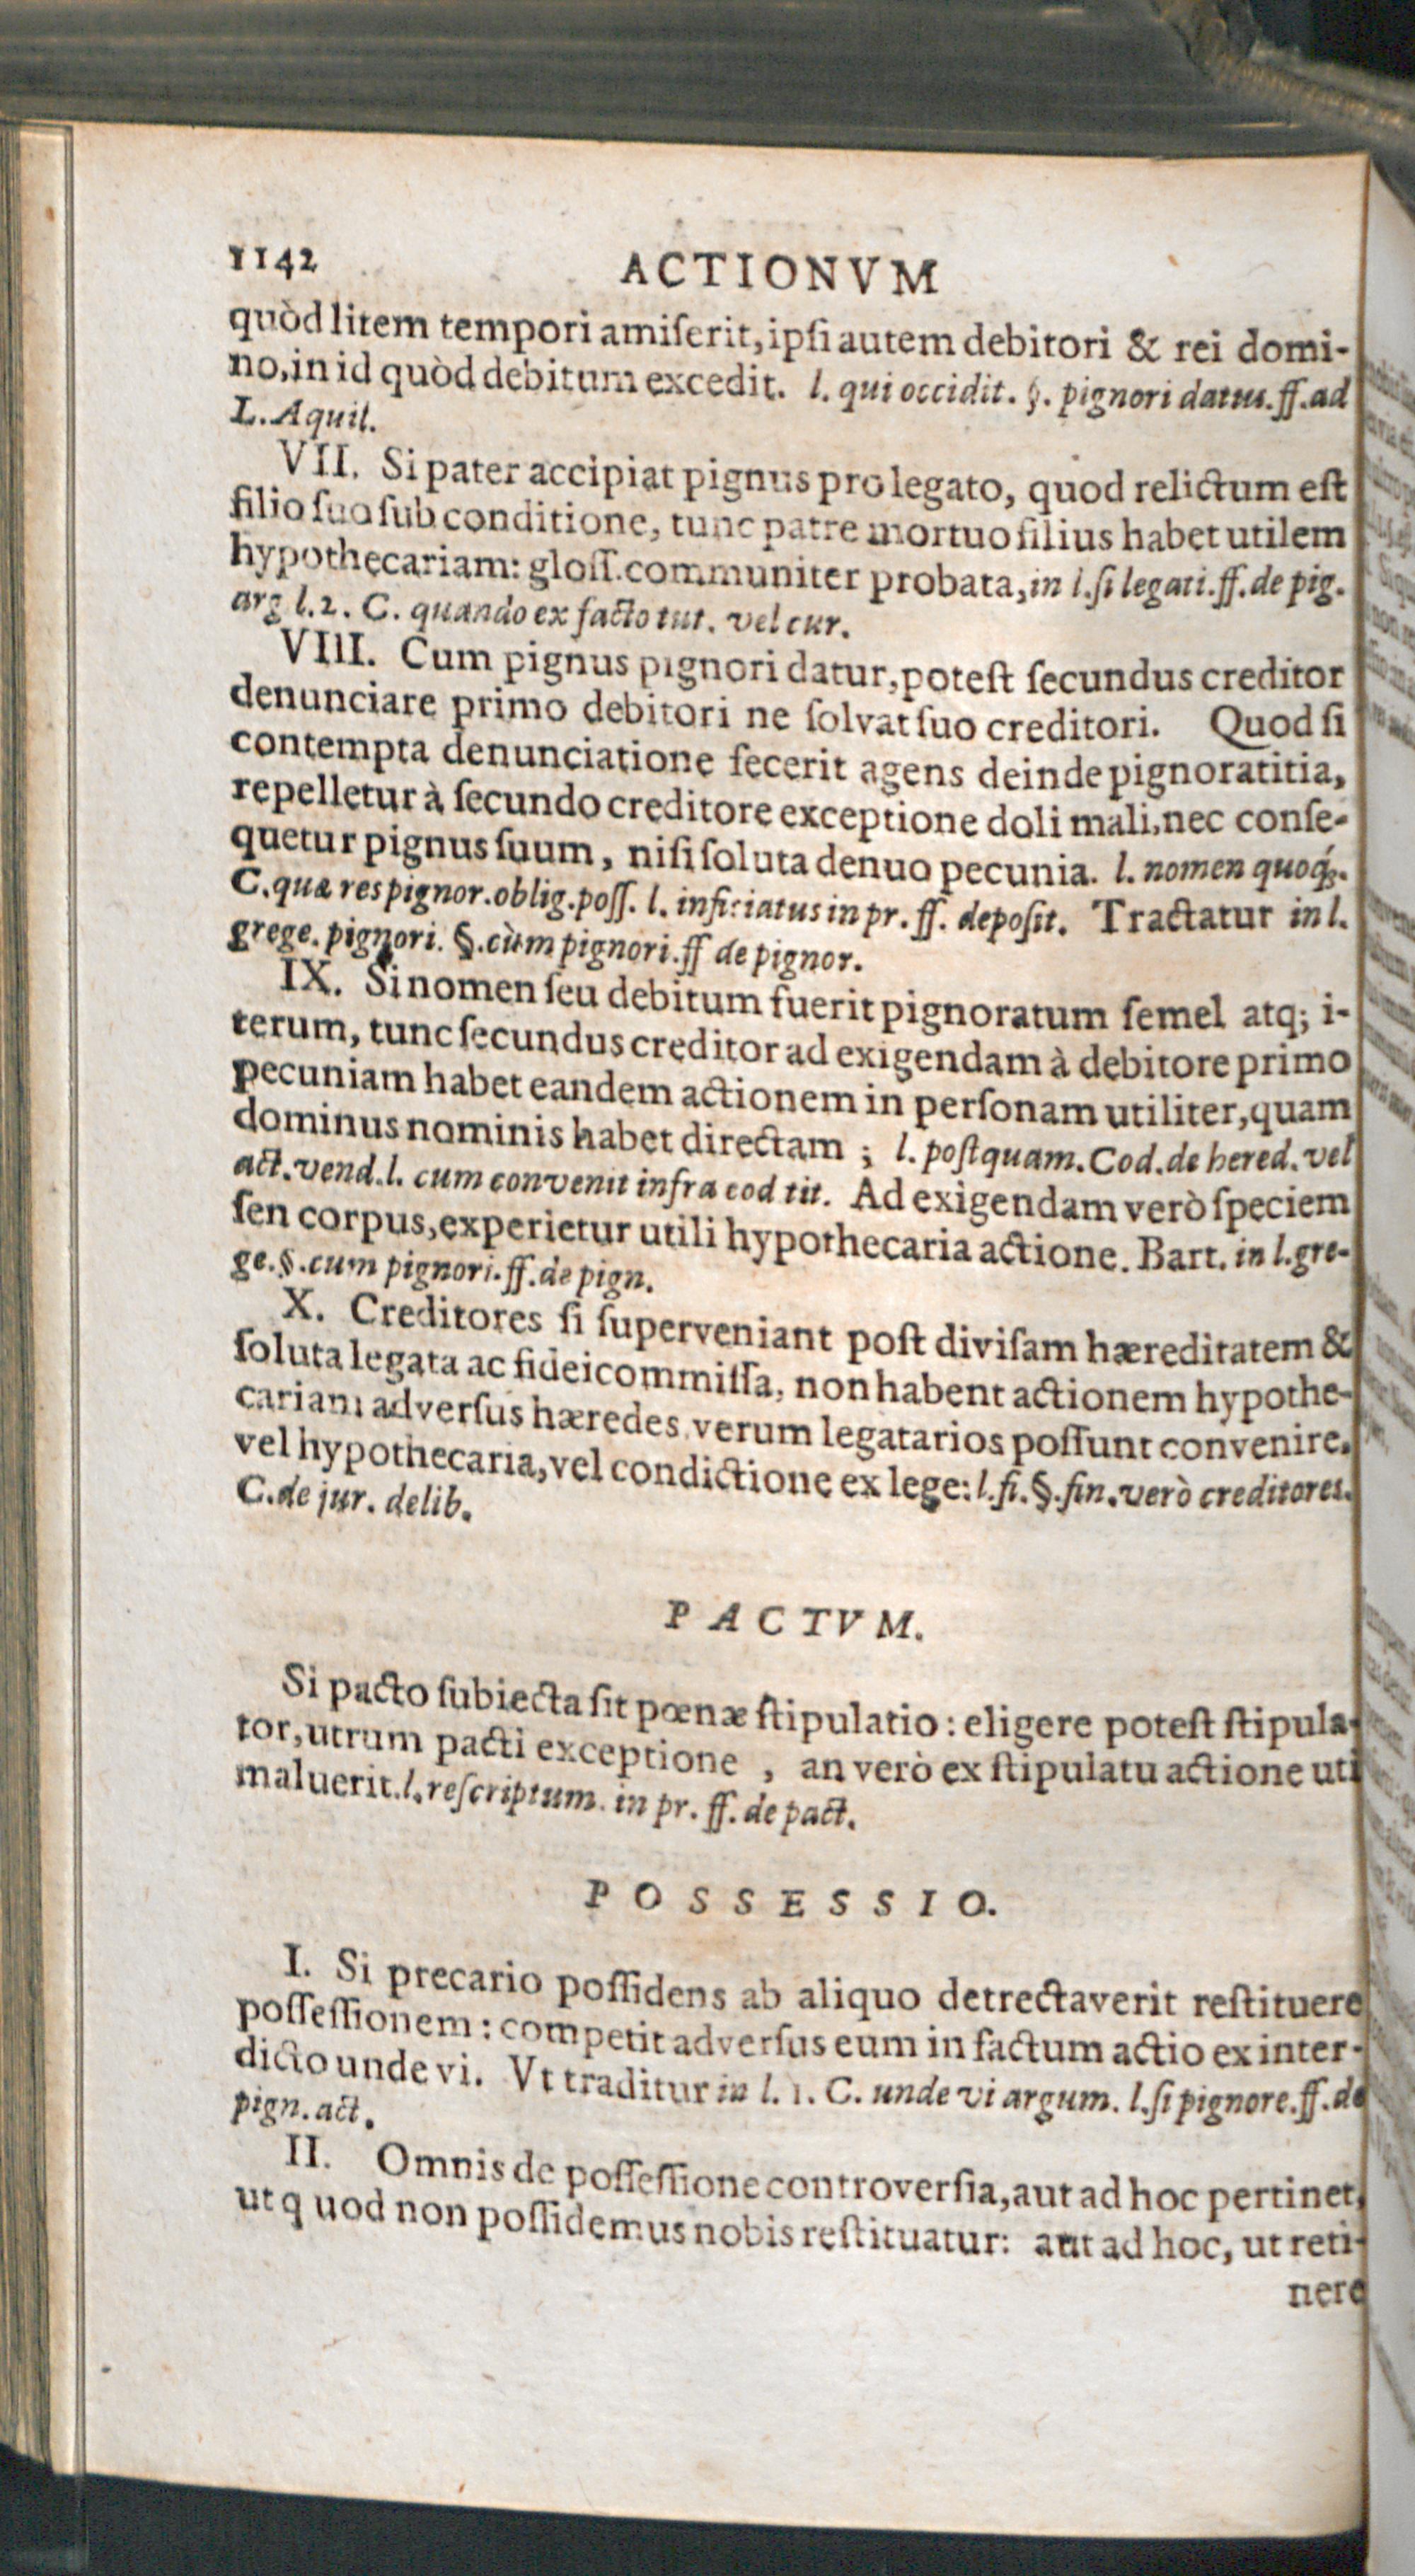 1142 ACTIONVM
quòd litem tempori amiſerit, ipſi autem debitori & rei domi-
no, in id quòd debitum excedit. l. qui occidit. §. pignori datus. ff. ad
L. Aquil.
VII. Si pater accipiat pignus pro legato, quod relictum eſt
filio ſuo ſub conditione, tunc patre mortuo filius habet utilem
hypothecariam: gloſſ. communiter probata, in l. ſi legati. ff. de pig.
arg l. 2. C. quando ex facto tut. vel cur.
VIII. Cum pignus pignori datur, poteſt ſecundus creditor
denunciare primo debitori ne ſolvat ſuo creditori. Quod ſi
contempta denunciatione fecerit agens deinde pignoratitia,
repelletur à ſecundo creditore exceptione doli mali, nec conſe-
quetur pignus ſuum, niſi ſoluta denuo pecunia. l. nomen quoq́;.
C. quæ res pignor. oblig. poſſ. l. inficiatus in pr. ff. depoſit. Tractatur in l.
grege. pignori. §. cùm pignori. ff de pignor.
IX. Si nomen ſeu debitum fuerit pignoratum ſemel atq; i-
terum, tunc ſecundus creditor ad exigendam à debitore primo
pecuniam habet eandem actionem in perſonam utiliter, quam
dominus nominis habet directam ; l. poſtquam. Cod. de hered. vel
act. vend. l. cum convenit infra eod tit. Ad exigendam verò ſpeciem
ſen corpus, experietur utili hypothecaria actione. Bart. in l. gre-
ge. §. cum pignori. ff. de pign.
X. Creditores ſi ſuperveniant poſt diviſam hæreditatem &
ſoluta legata ac fideicommiſſa, non habent actionem hypothe-
cariam adverſus hæredes, verum legatarios poſſunt convenire,
vel hypothecaria, vel condictione ex lege: l. fi. §. fin. verò creditores.
C. de jur. delib.
PACTVM.
Si pacto ſubiecta ſit pœnæ ſtipulatio : eligere poteſt ſtipula-
tor, utrum pacti exceptione , an verò ex ſtipulatu actione uti
maluerit. l. reſcriptum. in pr. ff. de pact.
POSSESSIO.
I. Si precario poſſidens ab aliquo detrectaverit reſtituere
poſſeſſionem : competit adverſus eum in factum actio ex inter-
dicto unde vi. Vt traditur in l. 1. C. unde vi argum. l. ſi pignore. ff. de
pign. act.
II. Omnis de poſſeſſione controverſia, aut ad hoc pertinet,
ut q uod non poſſidemus nobis reſtituatur: aut ad hoc, ut reti-
nere